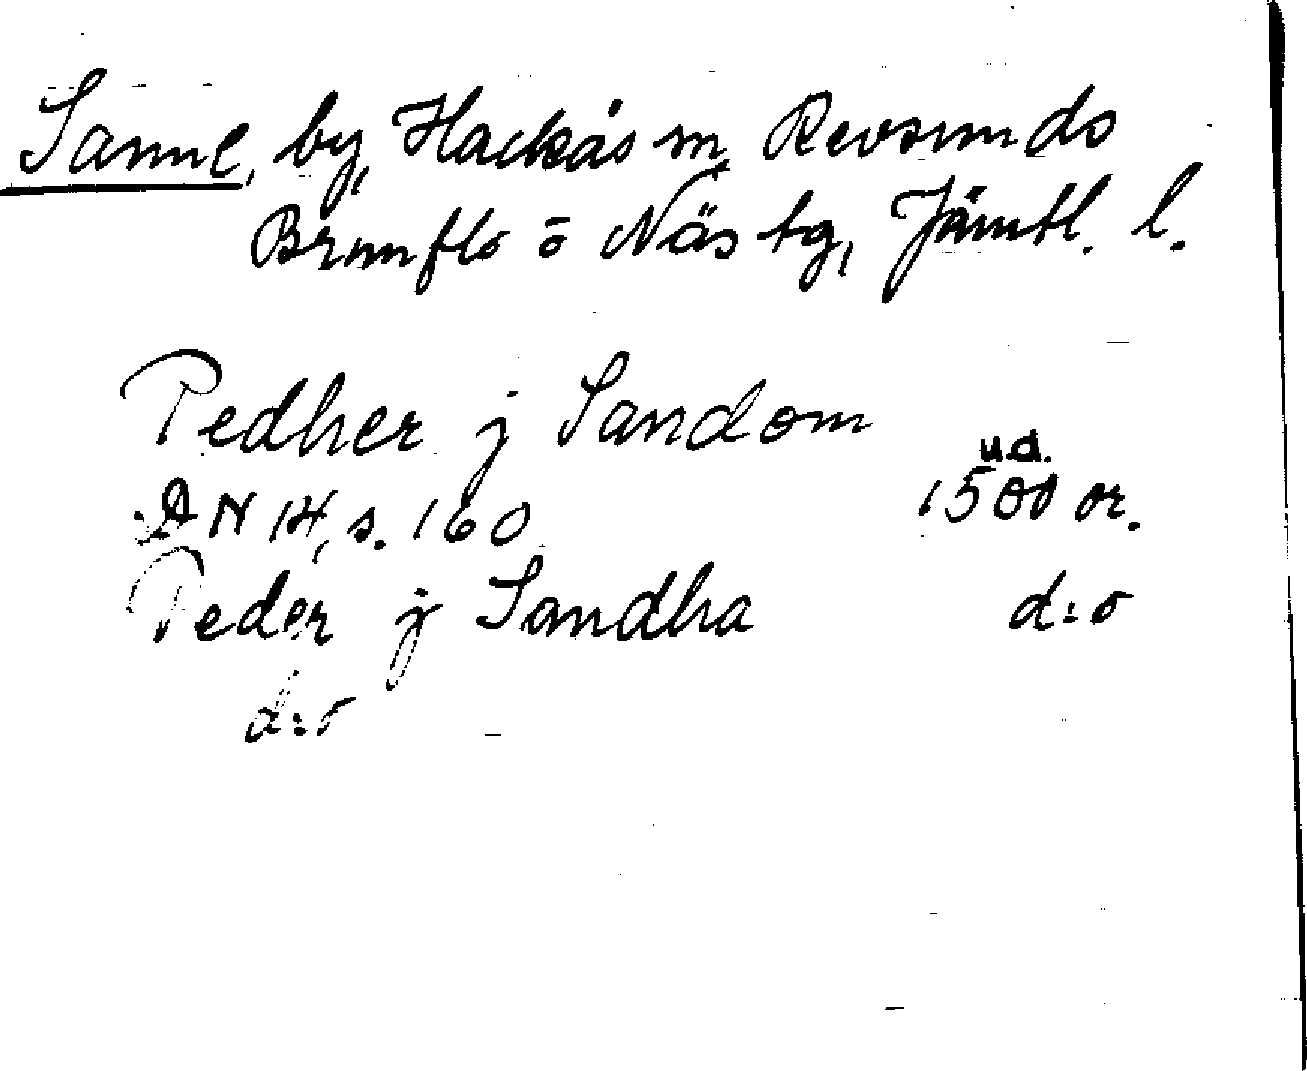 Sanne, by, Hackås sn, Revsunds
Brunflo o Näs tg, Jämtl. l.
Pedher j Sandom
u.d.
DN 14, s. 160 1500 or.
Peder j Sandha d:o
d:o